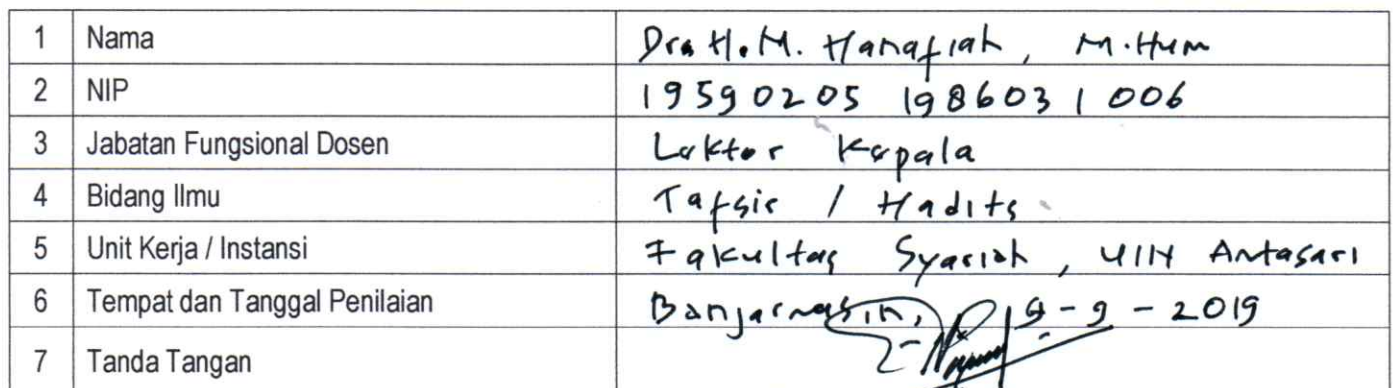 1 Nama Dra H.M. Hanafiah, M.Hum
2 NIP 19590205 198603 1 006
3 Jabatan Fungsional Dosen Lektor Kepala
4 Bidang Ilmu Tafsir / Hadits
5 Unit Kerja / Instansi Fakultas Syariah, UIN Antasari
6 Tempat dan Tanggal Penilaian Banjarmasin, 9-9-2019
7 Tanda Tangan